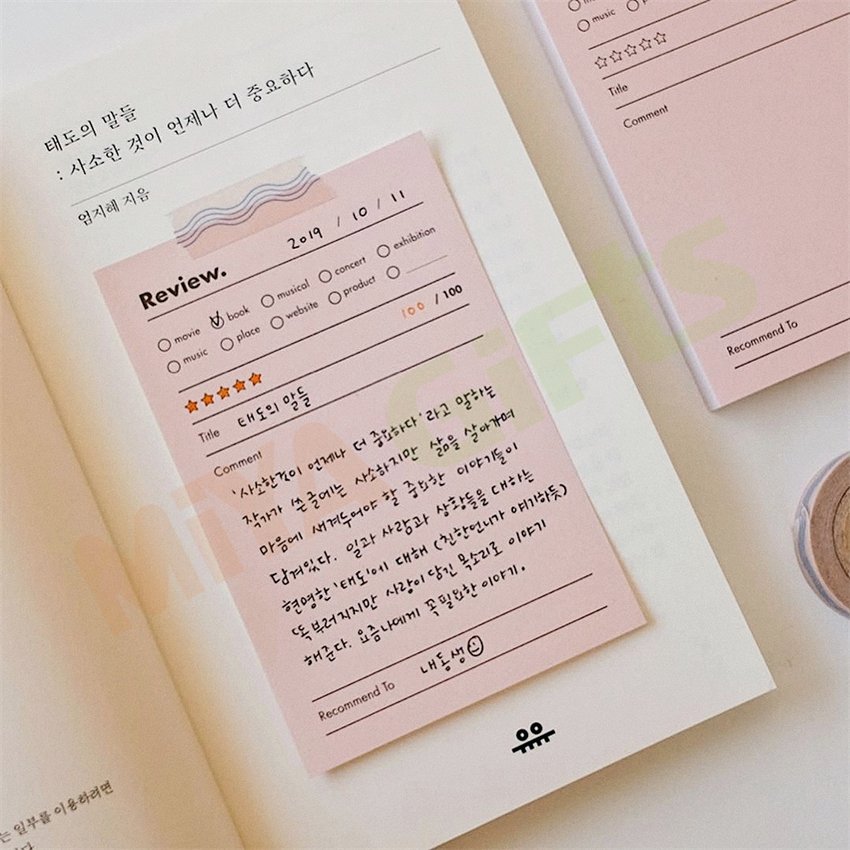 태도의 말들
: 사소한 것이 언제나 더 중요하다
엄지혜 지음
2019 / 10 / 11
Review.
movie book musical concert exhibition
music place website product
100 / 100
Title 태도의 말들
Comment
'사소한것이 언제나 더 중요하다'라고 말하는
작가가 쓴글에는 사소하지만 삶을 살아가며
마음에 새겨두어야 할 중요한 이야기들이
담겨있다. 일과 사람과 상황들을 대하는
현명한 '태도'에 대해 (친한언니가 얘기하듯)
똑부러지지만 사랑이 담긴 목소리로 이야기
해준다. 요즘나에게 꼭 필요한 이야기.
Recommend To 내동생
music
Title
Comment
Recommend To
는 일부를 이용하려면
MiYA Gifts